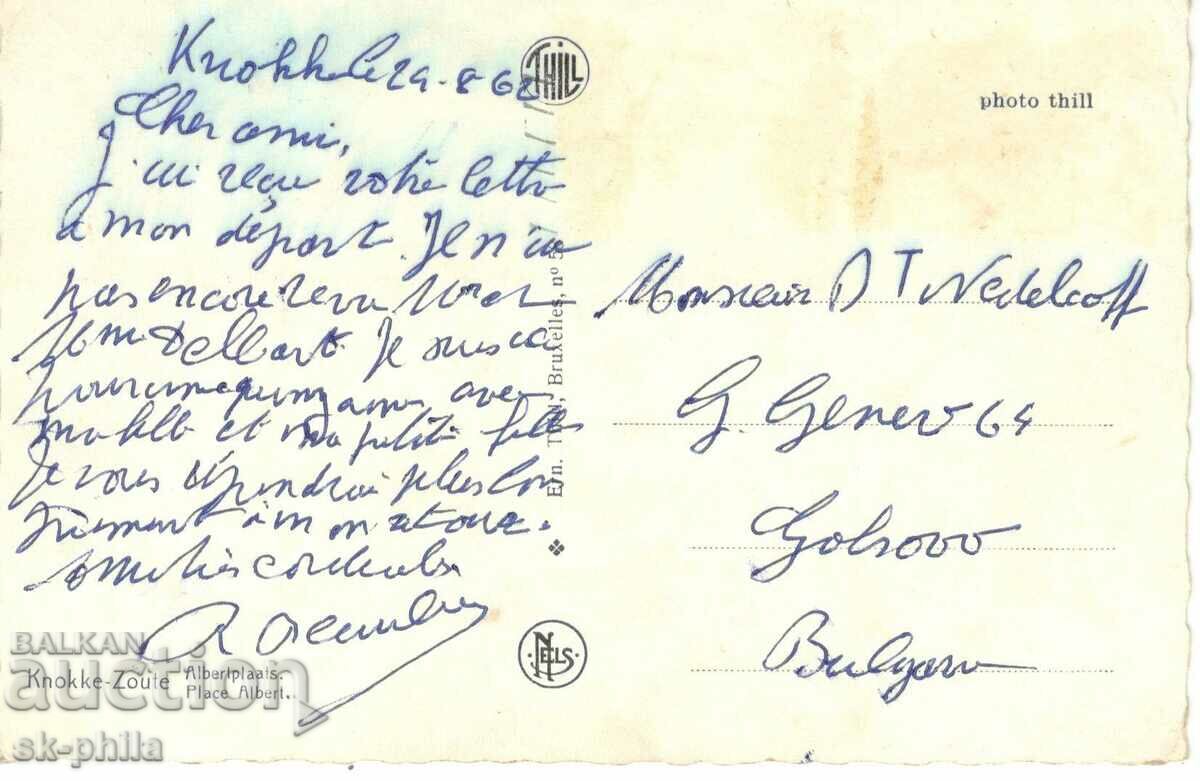 Knokke le 29-8 62
Cher ami,
J'ai reçu votre lettre
a mon départ. Je n'ai
pas encore revu
Mme Je suis ici
pour une quinzaine avec
ma fille et ma petite fille
Je vous répondrai plus lon
guement à mon retour.
Amitiés cordiales
R
Knokke-Zoute Albertplaats.
Place Albert.
THILL
Ern. Thill, Bruxelles, n° 5
NELS
photo thill
Monsieur D T Nedelcoff
G. Genev 64
Gabrovo
Bulgarie
BALKAN
auction
sk-phila